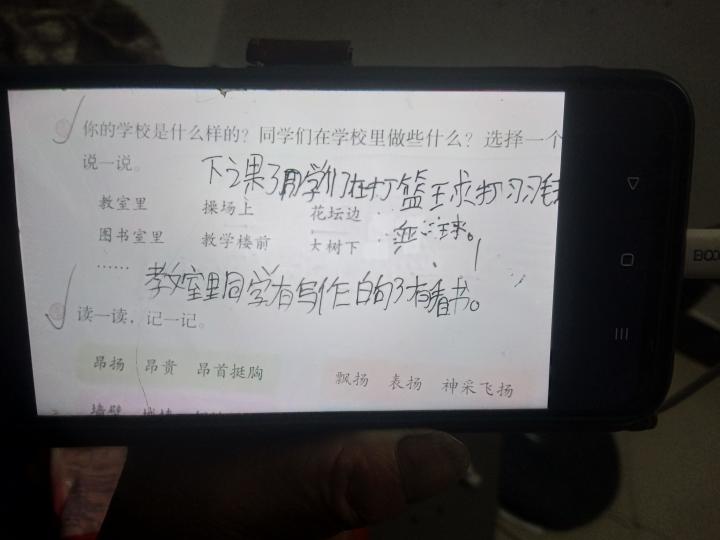 你的学校是什么样的？同学们在学校里做些什么？选择一个
说一说。
下之果了同学们在打篮球打习习
教室里 操场上 花坛边
球。
图书室里 教学楼前 大树下
……
教室里同学有写作白勺了有看书。
读一读，记一记。
昂扬 昂贵 昂首挺胸
飘扬 表扬 神采飞扬
墙壁
BOO